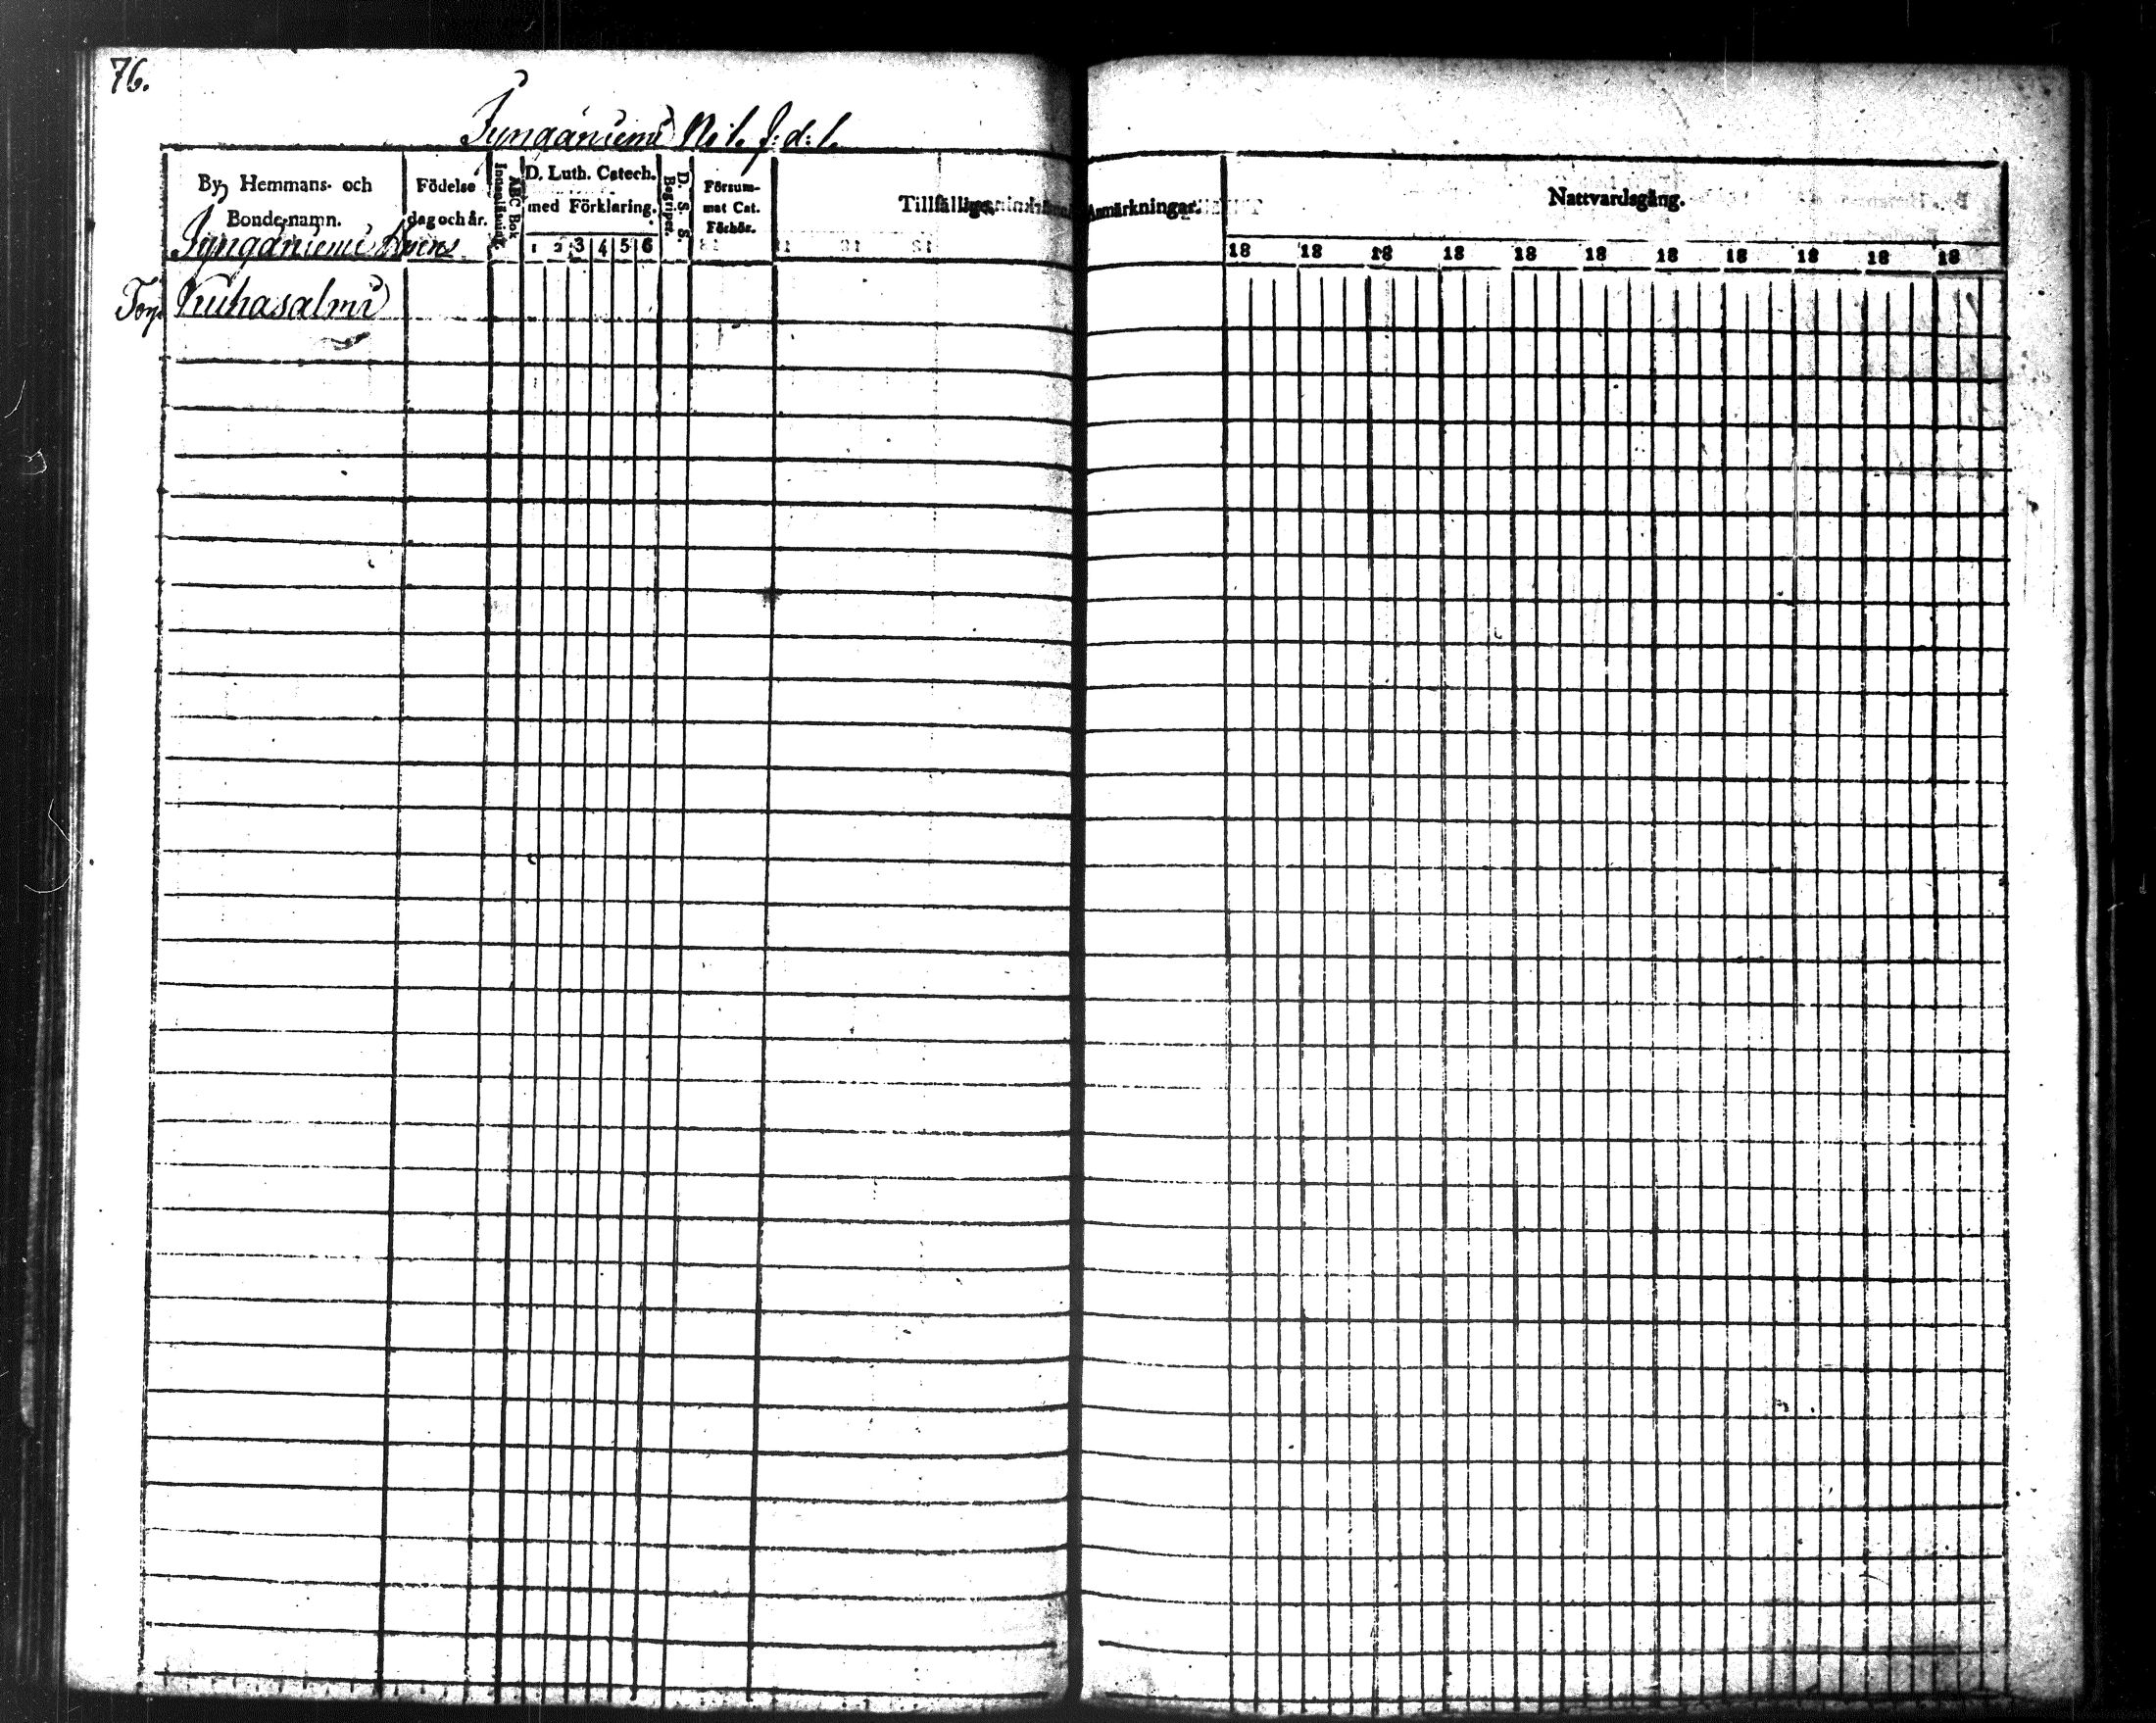 76.
Pyngäniemi No 1. f: d: 1.
By, Hemmans- och Bondenamn.
Födelse dag och år.
ABC Bok Innanläsning.
D. Luth. Catech. med Förklaring.
1 2 3 4 5 6
D. S. S. Begriper.
Försummat Cat. Förhör.
Tillfällige Anmärkningar.
Nattvardsgång.
18 18 18 18 18 18 18 18 18 18 18
Pyngäniemi
Torp Kuhasalmi